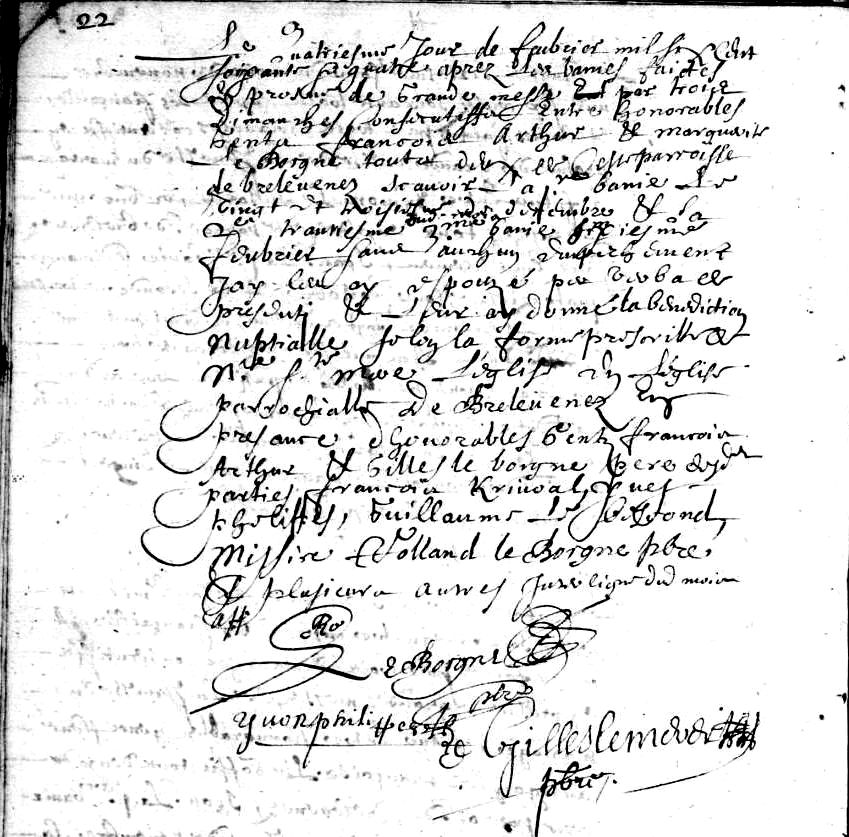 22
Le quatriesme Jour de febvrier mil six cent
soixante & quatre aprez les banies faictes
au prosne de Grande messe par trois
dimanches Consecutiffs Entre honorables
Gents francois Arthur & marguerite
Le Borgne touts deux de Ceste parroisse
de breleuenez scavoir la banie Le
vingt et troisiesme de & La
trantiesme banie
febvrier sans aucun Empechement
Jay espousé par verba de
presenti & Leur ay donné la benediction
Nuptialle selon la forme prescritte de
N.re S.te mere Leglise En Leglise
parrochialle de Breleuenez En
presance dhonorables Gents francois
Arthur & Gilles le borgne pere desd
parties, francois Krivoal, Yves
phelippes, Guillaume Le
Missire Rolland le Borgne pbre,
& plusieurs autres
aff.
Ro
Le Borgne
pbre
yvon philippe
Gilles lemeder
pbre.